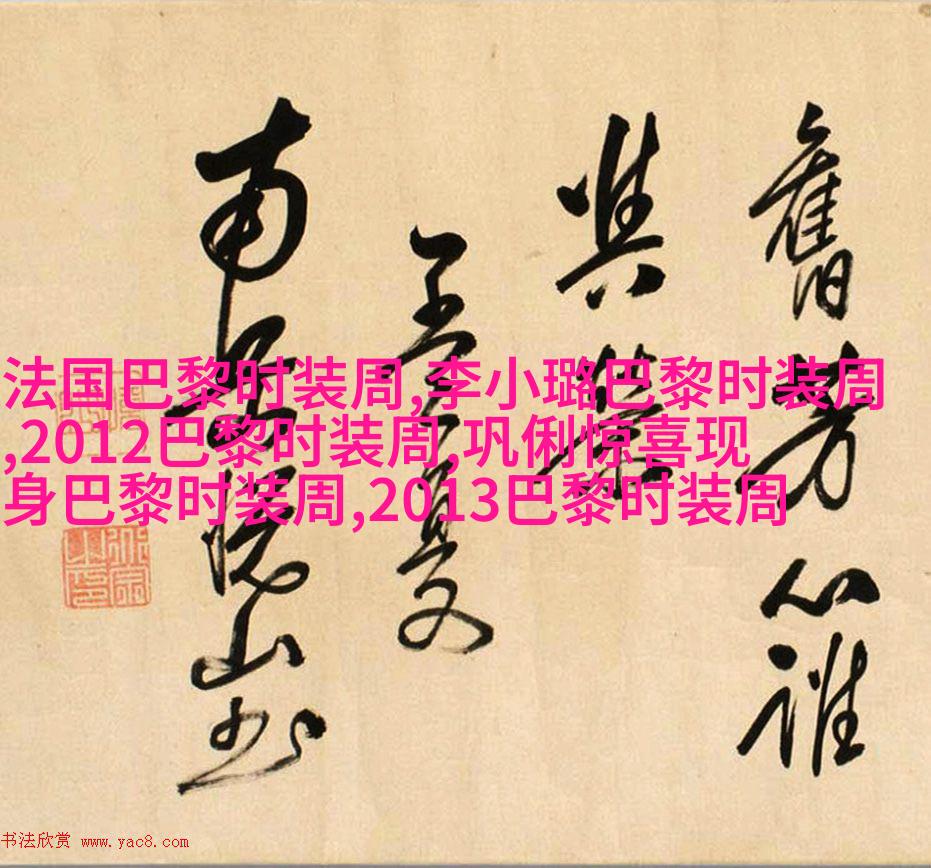 法国巴黎时装周,李小璐巴黎时装周
,2012巴黎时装周,巩俐惊喜现
身巴黎时装周,2013巴黎时装周
舊芳心誰
南山书
书法欣赏 www.yac8.com